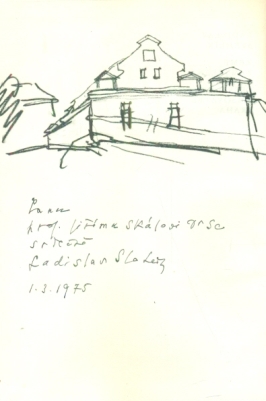 Panu
prof. Jiřímu Skálovi DrSc
srdečně
Ladislav
1.3.1975